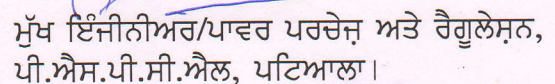 ਮੁੱਖ ਇੰਜੀਨੀਅਰ/ਪਾਵਰ ਪਰਚੇਜ਼ ਅਤੇ ਰੈਗੂਲੇਸ਼ਨ,
ਪੀ.ਐਸ.ਪੀ.ਸੀ.ਐਲ, ਪਟਿਆਲਾ।